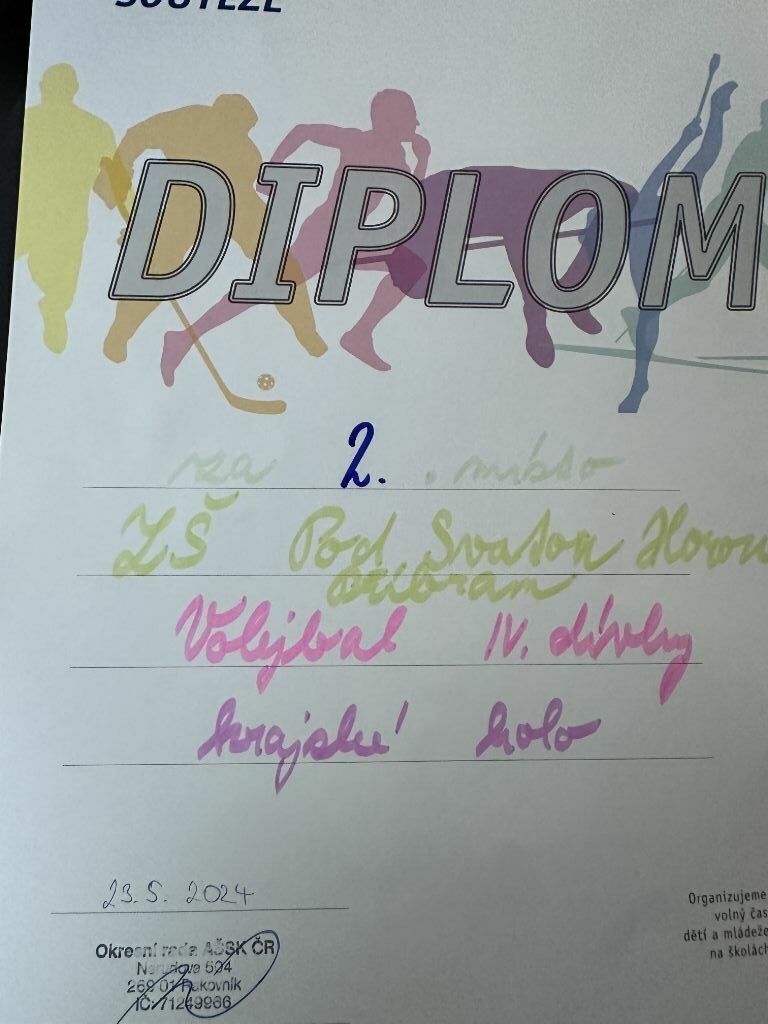 SOUTĚŽE
DIPLOM
za 2. místo
ZŠ Pod Svatou Horou
Příbram
Volejbal IV. dívky
krajské kolo
23.5. 2024
Okresní rada AŠSK ČR
Nerudova 594
269 01 Rakovník
IČ: 71249966
Organizujeme
volný čas
dětí a mládeže
na školách